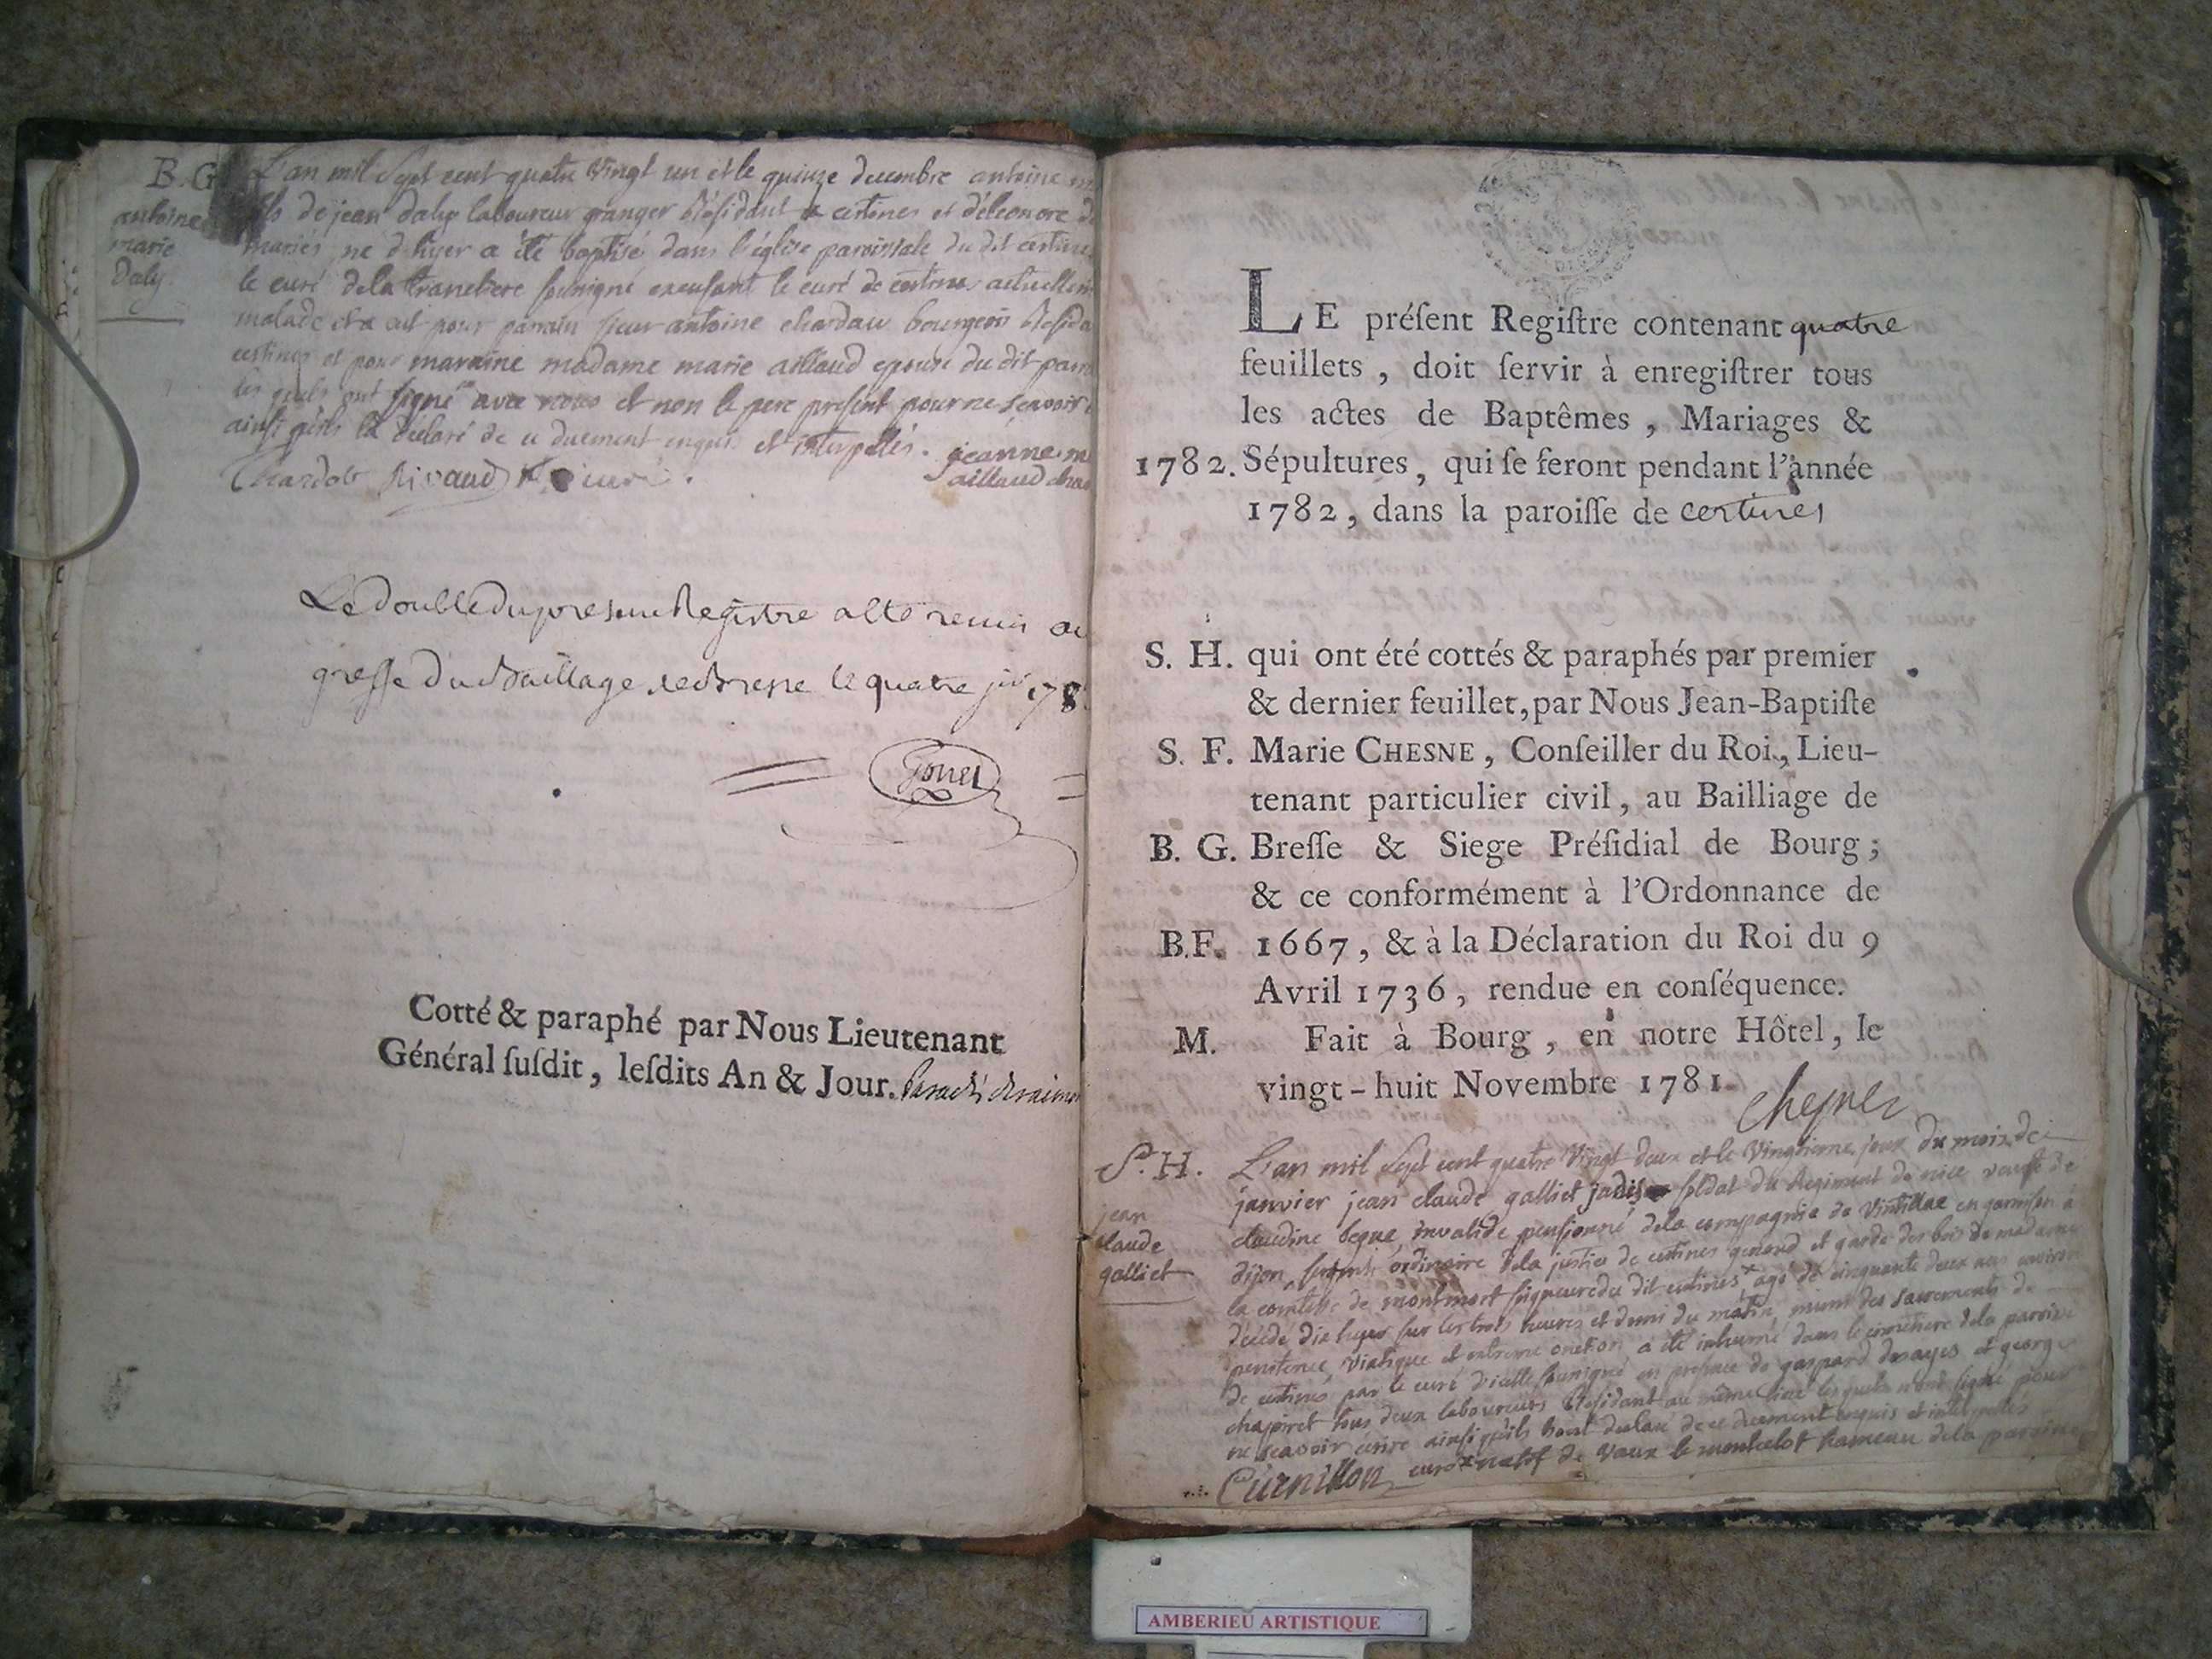 B.G. L'an mil Sept cent quatre Vingt un et le quinze decembre antoine
antoine marie Daly
fils de jean daly laboureur granger Résidant a certines et d'éléonore
mariés né d'hyer a été baptisé dans l'église paroissiale du dit certines
le curé de la tranchere sousigné excusant le curé de certines actuellem
malade et a eut pour parrain sieur antoine chardau bourgeois Résida
certines et pour maraine madame marie aillaud epouse du dit parra
les quels ont signé avec nous et non le pere present pour ne scavoir
ainsi qu'ils la déclaré de ce duement enquis et interpellés. jeanne m
Chardot Rivaud curé. aillaud cha
Le double du present Registre a été remis au
greffe du Bailliage de Bresse le quatre jer 178
Cotté & paraphé par Nous Lieutenant
Général ſuſdit, leſdits An & Jour.
LE préſent Regiſtre contenant quatre
feuillets, doit ſervir à enregiſtrer tous
les actes de Baptêmes, Mariages &
1782. Sépultures, qui ſe feront pendant l'année
1782, dans la paroiſſe de certines
S. H. qui ont été cottés & paraphés par premier
& dernier feuillet, par Nous Jean-Baptiſte
S. F. Marie CHESNE, Conſeiller du Roi, Lieu-
tenant particulier civil, au Bailliage de
B. G. Breſſe & Siege Préſidial de Bourg;
& ce conformément à l'Ordonnance de
B.F. 1667, & à la Déclaration du Roi du 9
Avril 1736, rendue en conſéquence.
M. Fait à Bourg, en notre Hôtel, le
vingt-huit Novembre 1781.
Chesne
S. H. L'an mil Sept cent quatre Vingt deux et le Vingtieme jour du mois de
jean claude galliet
janvier jean claude galliet jadis soldat du Regiment de nice veuf de
claudine invalide pensionné de la compagnie de Vintillac en garnison à
dijon, sergent ordinaire de la justice de certines et garde des bois de madame
la comtesse de montmort seigneure du dit certines * agé de cinquante deux ans environ
décédé d'hyer sur les trois heures et demi du matin, muni des sacrements de
penitence, viatique et extreme onction a été inhumé dans le cimetiere de la paroisse
de certines par le curé d'icelle sousigné en presence de gaspard desayes et george
chapiret tous deux laboureurs Résidant au même lieu les quels n'ont signé pour
ne scavoir écrire ainsi qu'ils l'ont déclaré de ce duement enquis et interpellés
Cürnillon curé * natif de Vaux le montcelot hameau de la paroisse
AMBERIEU ARTISTIQUE